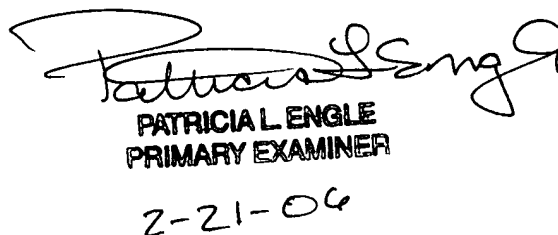 Patricia L Engle
PATRICIA L. ENGLE
PRIMARY EXAMINER
2-21-06